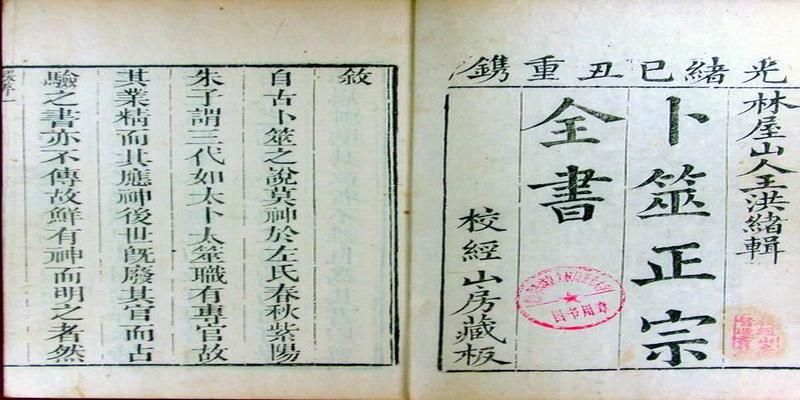 光緒己丑重鐫
林屋山人王洪緒輯
卜筮正宗
全書
校經山房藏板
敘
自古卜筮之說莫神於左氏春秋紫陽
朱子謂三代如太卜太筮職有專官故
其業精而其應神後世旣廢其官而占
驗之書亦不傳故鮮有神而明之者然